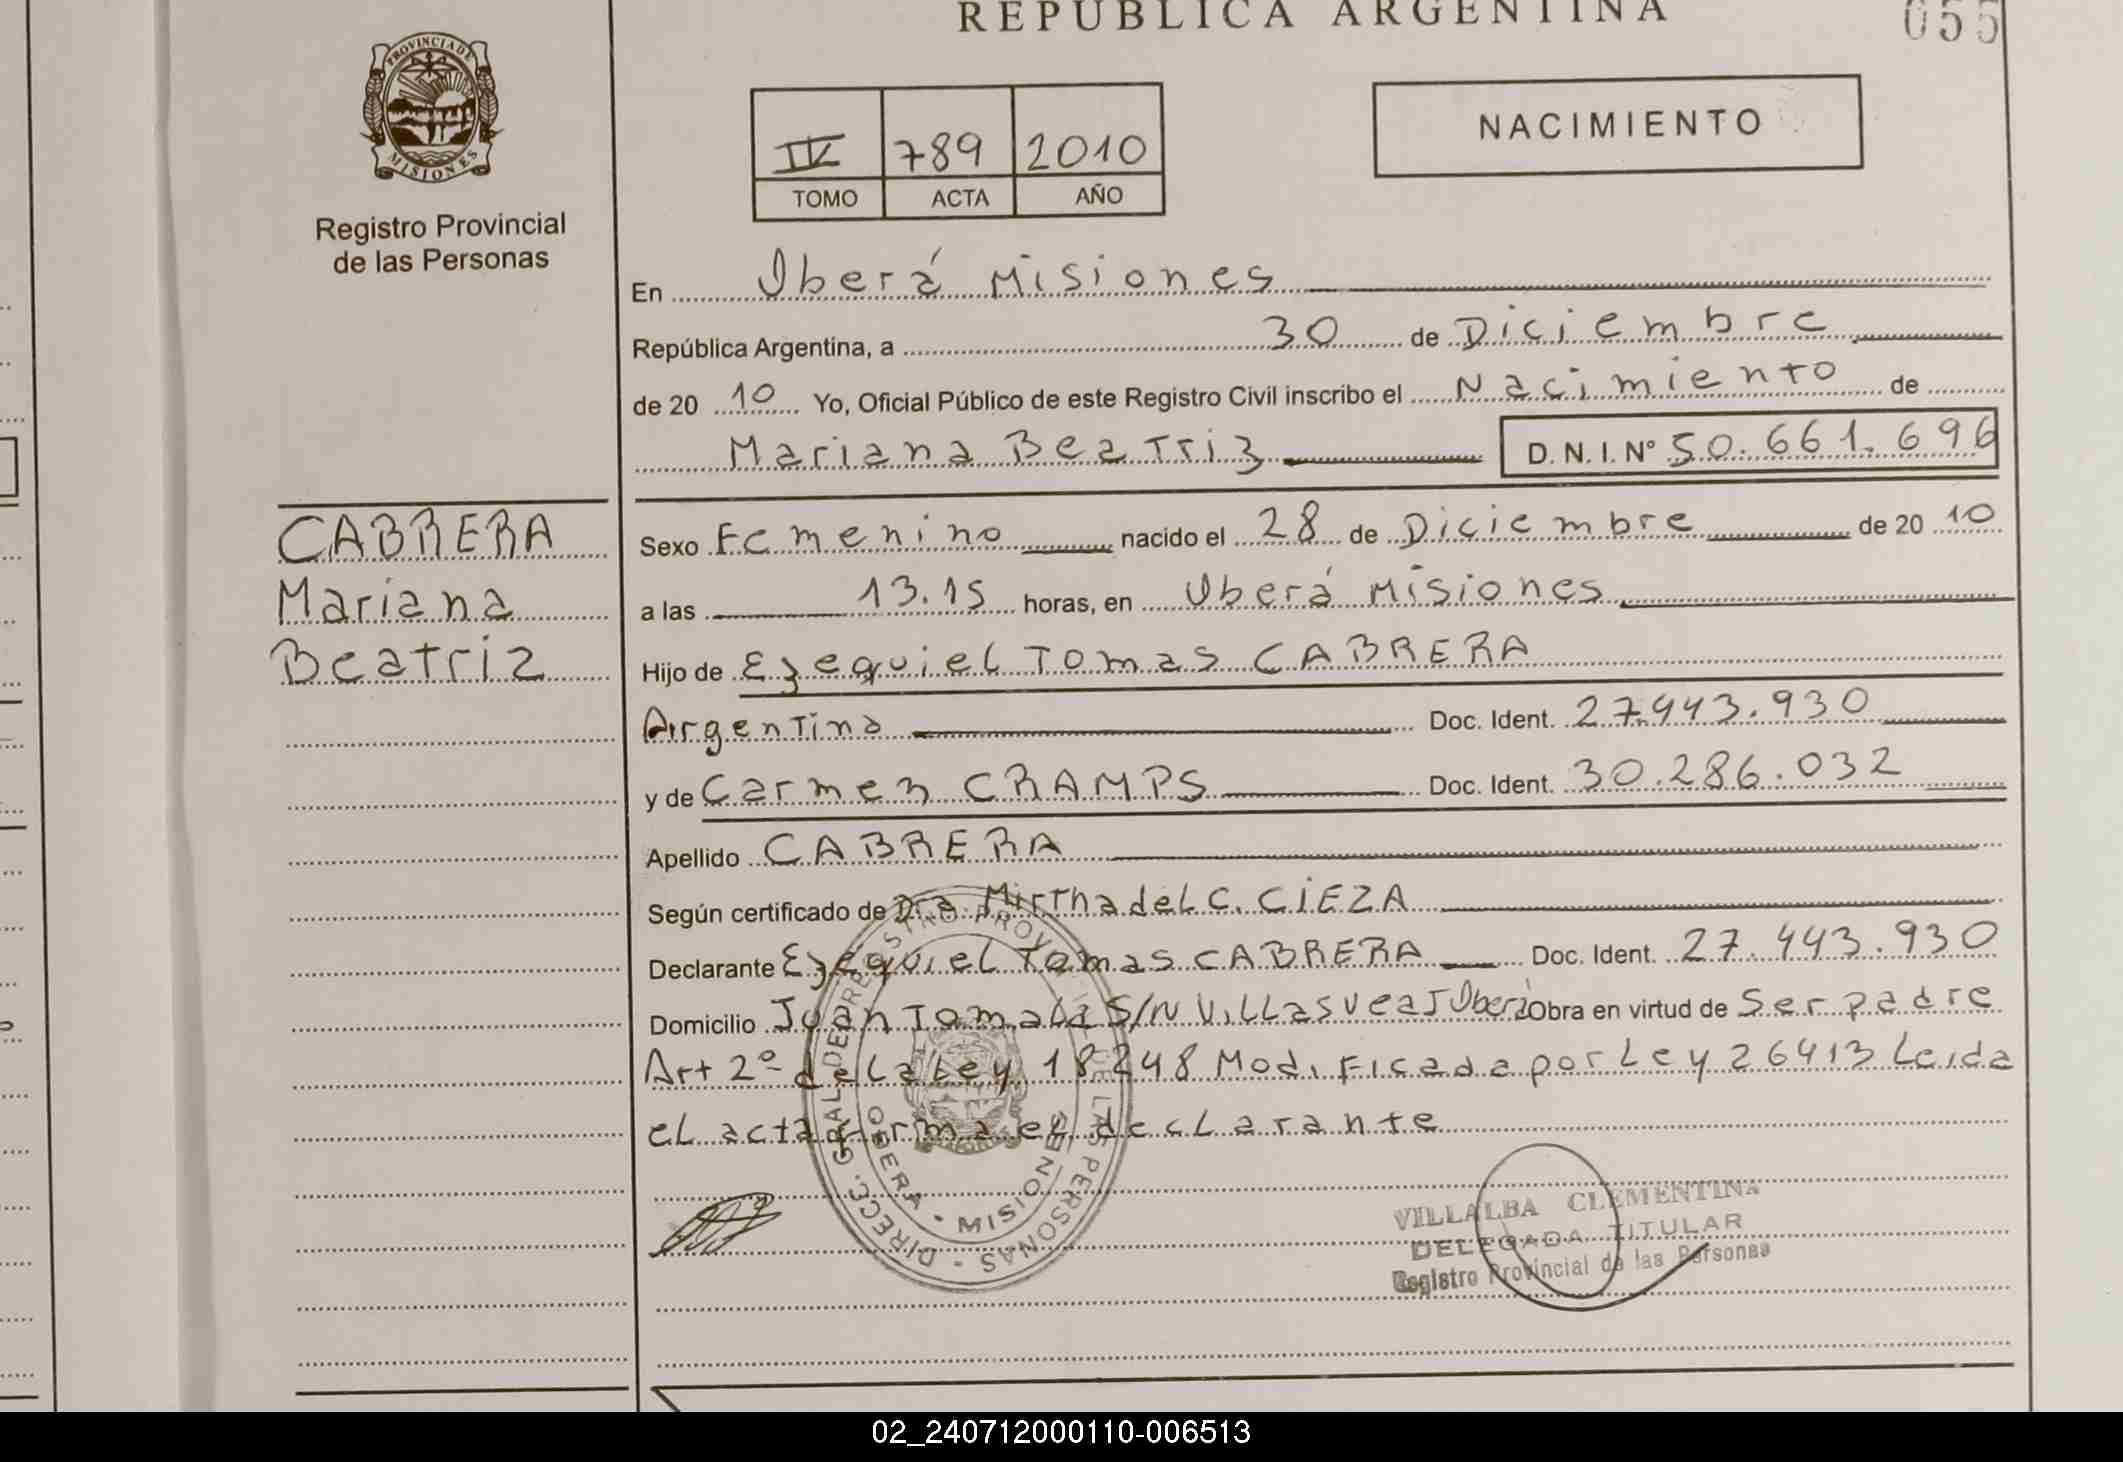 REPUBLICA ARGENTINA
055
PROVINCIA DE
MISIONES
Registro Provincial
de las Personas
IV 789 2010
TOMO ACTA AÑO
NACIMIENTO
En Oberá Misiones
República Argentina, a 30 de Diciembre
de 20 10 Yo, Oficial Público de este Registro Civil inscribo el Nacimiento de
Mariana Beatriz D. N. I. Nº 50.661.696
CABRERA
Mariana
Beatriz
Sexo Femenino nacido el 28 de Diciembre de 20 10
a las 13.15 horas, en Oberá Misiones
Hijo de Ezequiel Tomas CABRERA
Argentina Doc. Ident. 27.443.930
y de Carmen CRAMPS Doc. Ident. 30.286.032
Apellido CABRERA
Según certificado de Dra Mirtha del C. CIEZA
Declarante Ezequiel Tomas CABRERA Doc. Ident. 27.443.930
Domicilio Juan S/N Oberá Obra en virtud de Ser padre
Art 2º de la Ley 18248 Modificada por Ley 26413 Leida
el acta firma el declarante
DIRECC. GRAL DE REGISTRO PROVINCIAL DE LAS PERSONAS
OBERA - MISIONES
VILLALBA CLEMENTINA
DELEGADA TITULAR
Registro Provincial de las Personas
02_240712000110-006513